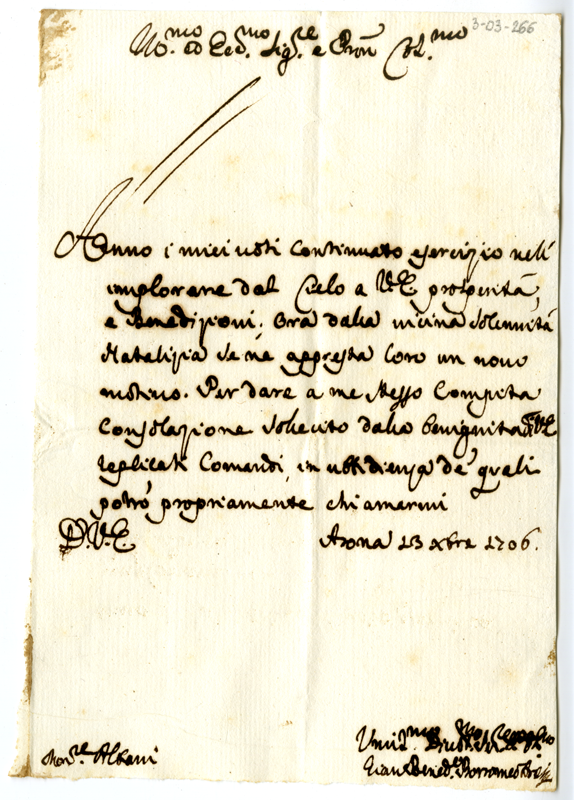 3-03-266
Ill.mo ed Ecc.mo Sig.re e Pron Col.mo
Anno i miei voti continuato esercizio nell'
implorare dal Cielo a V.E. prosperità,
e Benedizioni. Ora dalla vicina solennità
Natalizia se nè appresta loro un novo
motivo. Per dare a me stesso compita
consolazione sollecito dalla benignità di V.E.
replicati Comandi, in ubbidienza de' quali
potrò propriamente chiamarmi
D.V.E.
Arona 13 xbre 1706.
Mon.re Albani
Umil.mo
Gian Bened.o Borromeo